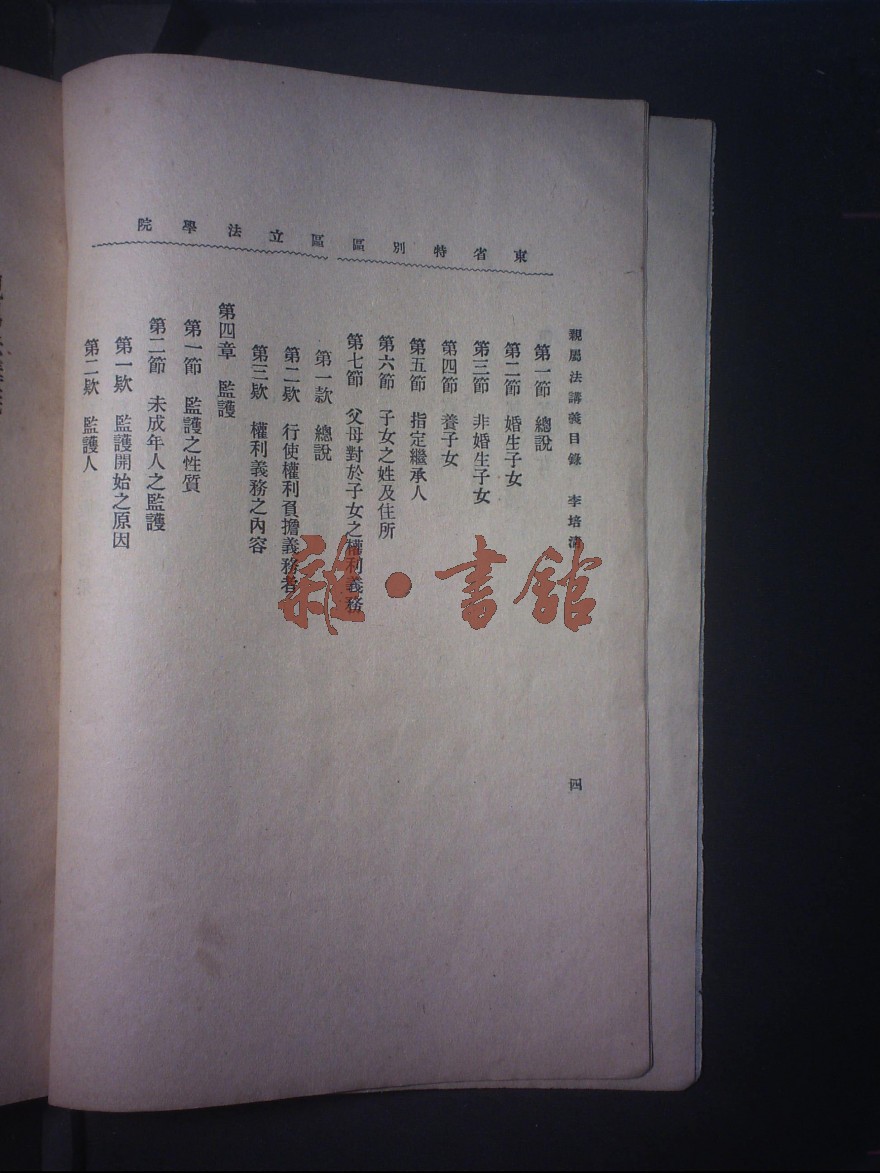 東省特別區區立法學院
親屬法講義目錄 李培清
四
第一節 總說
第二節 婚生子女
第三節 非婚生子女
第四節 養子女
第五節 指定繼承人
第六節 子女之姓及住所
第七節 父母對於子女之權利義務
第一款 總說
第二欵 行使權利負擔義務者
第三欵 權利義務之內容
第四章 監護
第一節 監護之性質
第二節 未成年人之監護
第一欵 監護開始之原因
第二欵 監護人
雜·書館